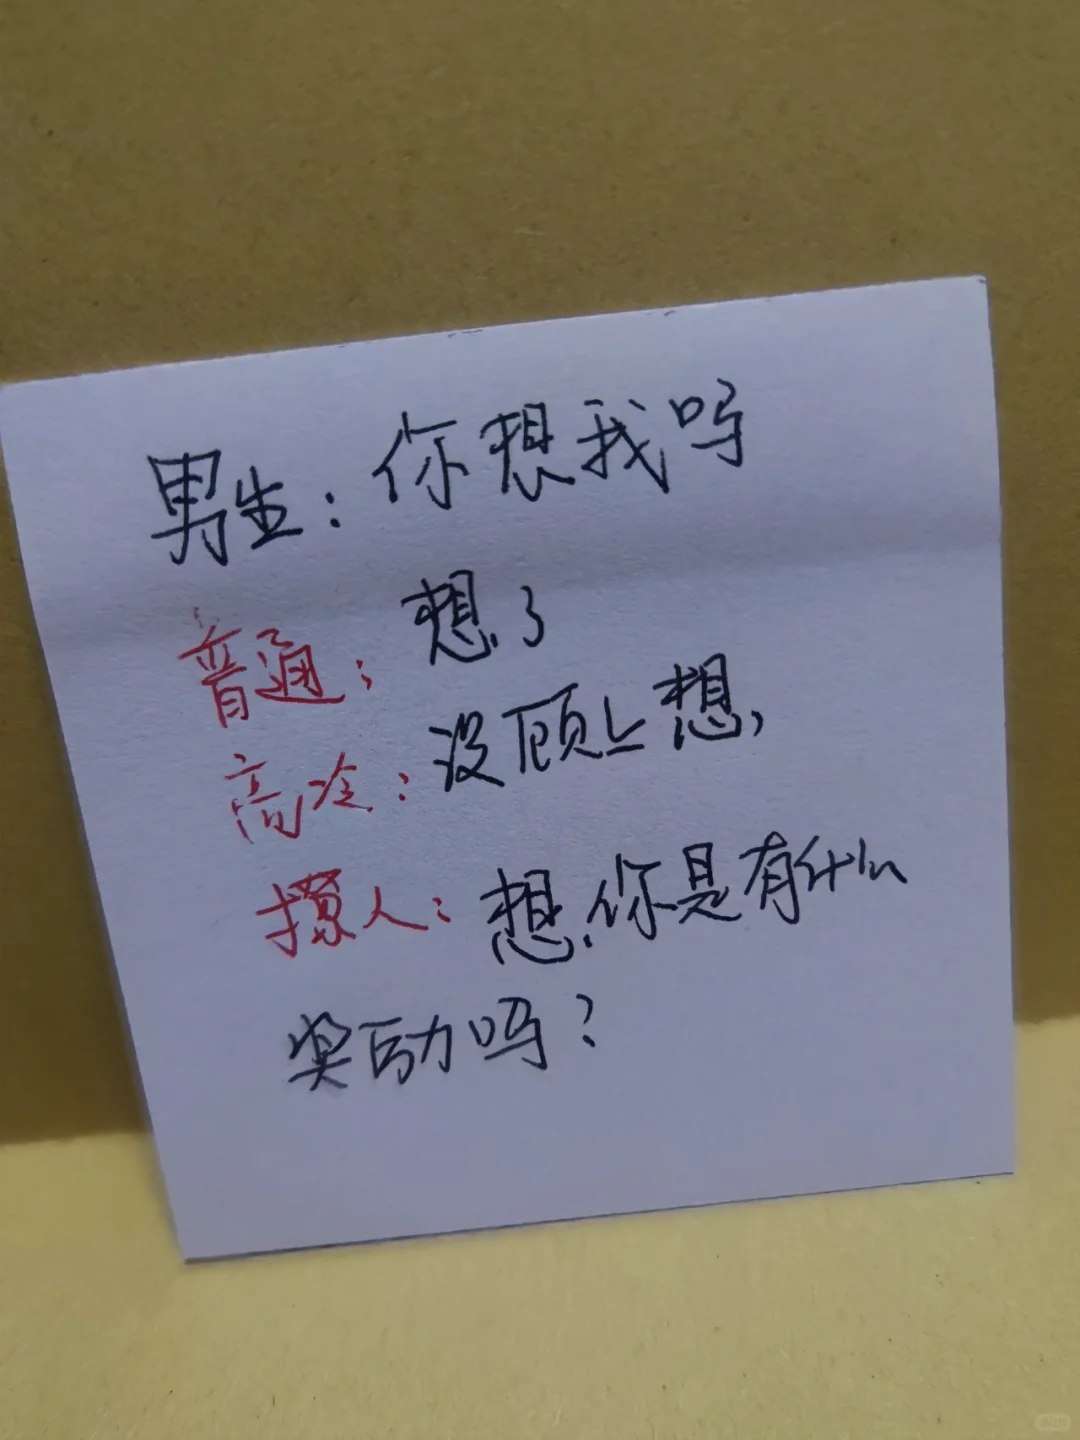 男生：你想我吗
普通：想了
高冷：没顾上想，
撩人：想，你是有什么
奖励吗？